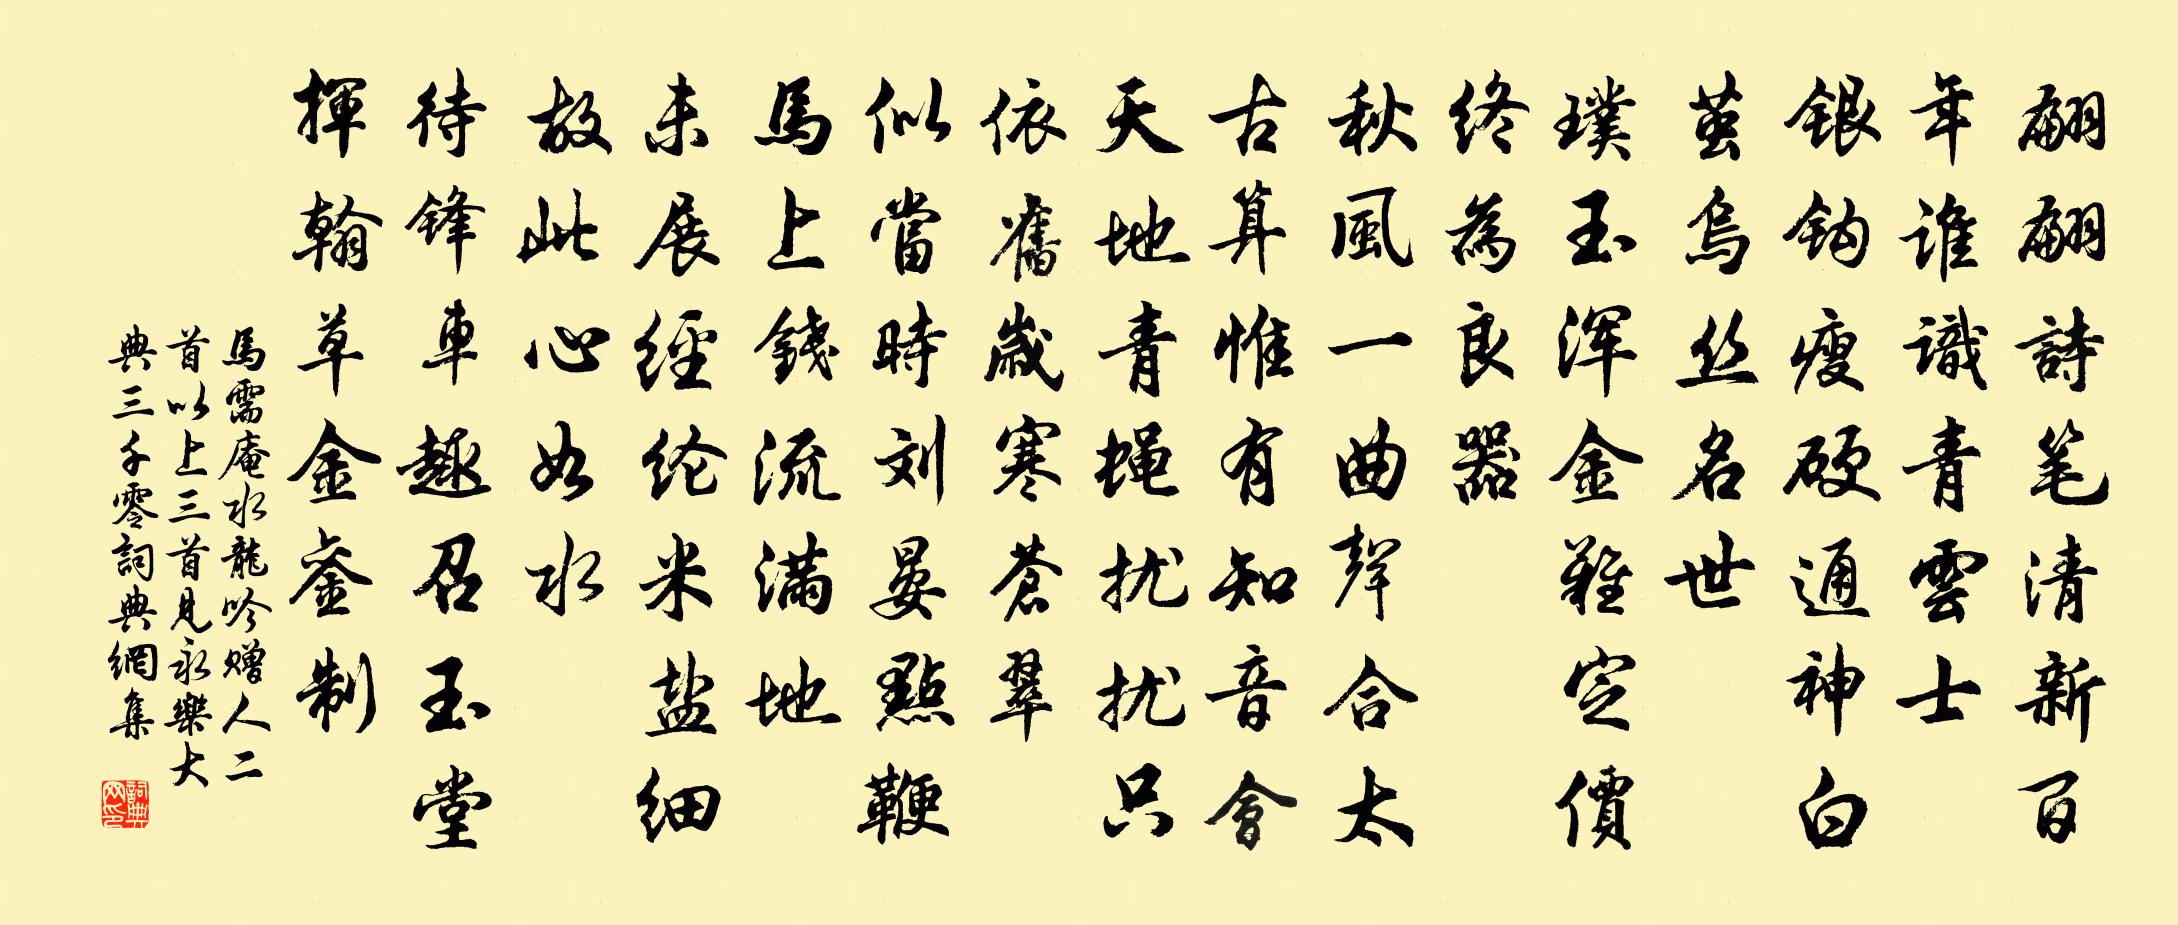 翩翩詩笔清新百
年谁識青雲士
银钩瘦硬通神白
茧乌丝名世
璞玉浑金難定價
终為良器
秋風一曲聲合太
古算惟有知音會
天地青蝇扰扰只
依舊歲寒蒼翠
似當時刘晏點鞭
馬上錢流满地
未展經纶米盐细
故此心如水
待锋車趣召玉堂
揮翰草金銮制
馬需庵水龍吟赠人二
首以上三首見永樂大
典三千零詞典網集
詞典网印